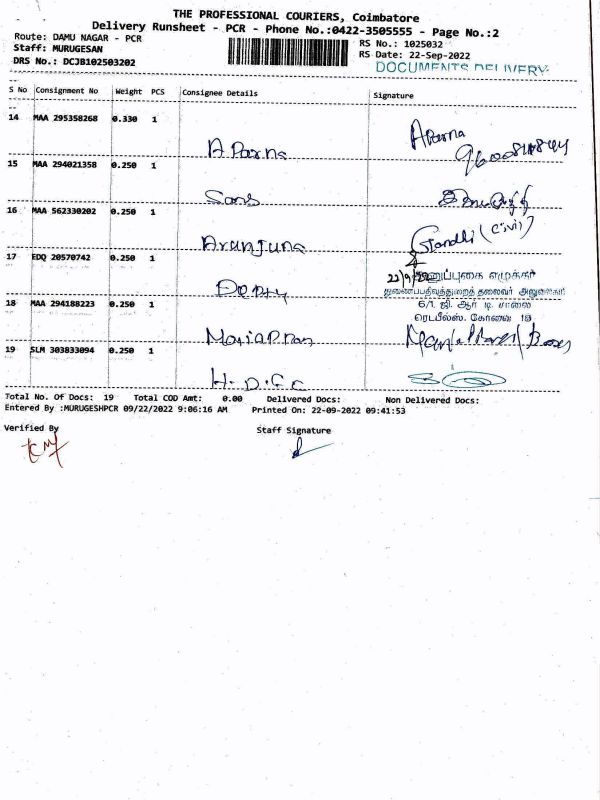 THE PROFESSIONAL COURIERS, Coimbatore
Delivery Runsheet - PCR - Phone No.:0422-3505555 - Page No.:2
Route: DAMU NAGAR - PCR
RS No.: 1025032
Staff: MURUGESAN
RS Date: 22-Sep-2022
DRS No.: DCJB102503202
DOCUMENTS DELIVERY
S No Consignment No Weight PCS Consignee Details Signature
14 MAA 295358268 0.330 1
Aparna
15 MAA 294021358 0.250 1
Sons
16 MAA 562330202 0.250 1
Gandhi (Civil)
Arunjuna
17 EDQ 20570742 0.250 1
22/9/22
துணைப்பதிவுத்துறைத் தலைவர் அலுவலகம்
18 MAA 294188223 0.250 1
6/1, ஜி ஆர் டி சாலை
ரெட்பீல்ஸ், கோவை 18
19 SLM 303833094 0.250 1
H.D.F.C
Total No. Of Docs: 19 Total COD Amt: 0.00 Delivered Docs: Non Delivered Docs:
Entered By :MURUGESHPCR 09/22/2022 9:06:16 AM Printed On: 22-09-2022 09:41:53
Verified By
Staff Signature